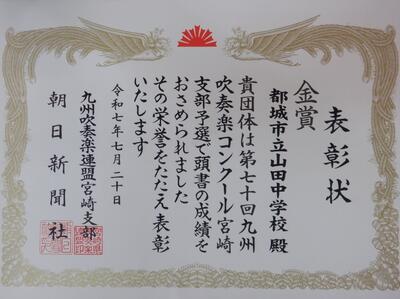 表彰状
金賞
都城市立山田中学校 殿
貴団体は第七十回九州
吹奏楽コンクール宮崎
支部予選で頭書の成績を
おさめられました
その栄誉をたたえ表彰
いたします
令和七年七月二十日
九州吹奏楽連盟宮崎支部
朝日新聞社